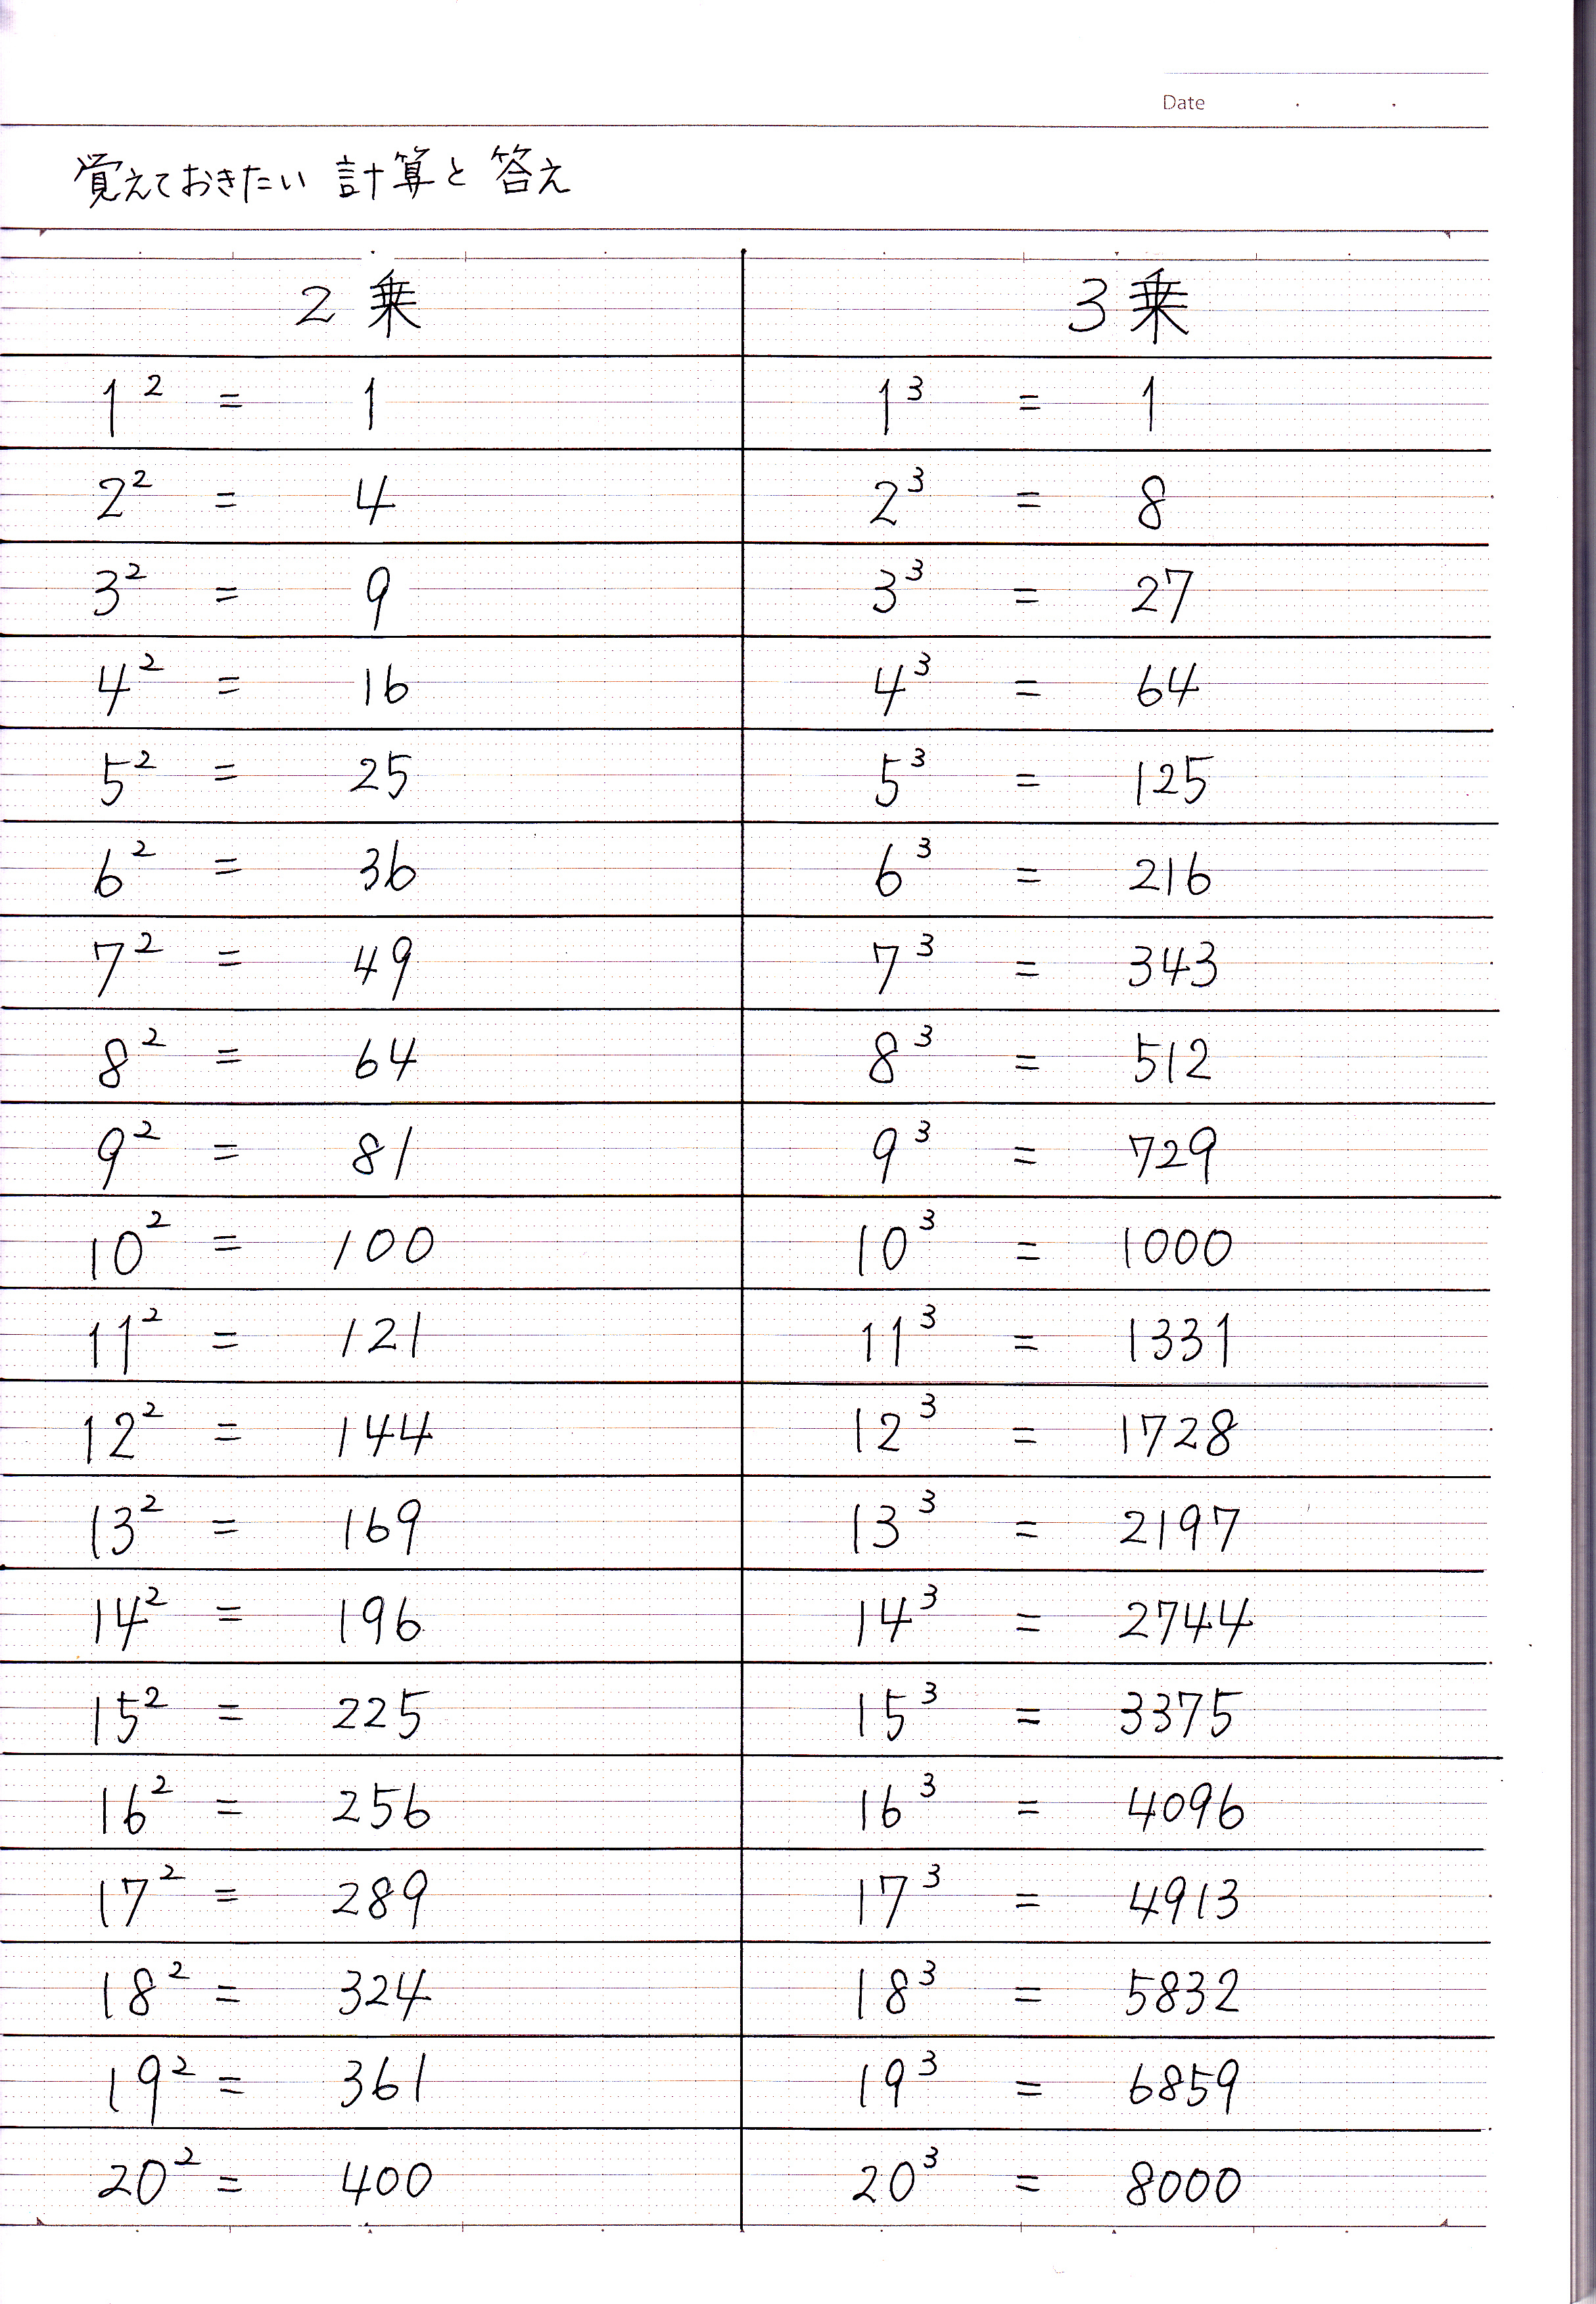 Date
覚えておきたい 計算と 答え
2乗 3乗
1² = 1 1³ = 1
2² = 4 2³ = 8
3² = 9 3³ = 27
4² = 16 4³ = 64
5² = 25 5³ = 125
6² = 36 6³ = 216
7² = 49 7³ = 343
8² = 64 8³ = 512
9² = 81 9³ = 729
10² = 100 10³ = 1000
11² = 121 11³ = 1331
12² = 144 12³ = 1728
13² = 169 13³ = 2197
14² = 196 14³ = 2744
15² = 225 15³ = 3375
16² = 256 16³ = 4096
17² = 289 17³ = 4913
18² = 324 18³ = 5832
19² = 361 19³ = 6859
20² = 400 20³ = 8000